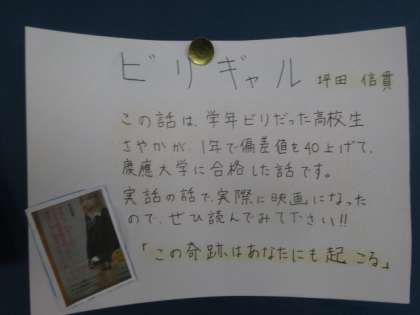 ビリギャル 坪田 信貴
この話は、学年ビリだった高校生
さやかが、1年で偏差値を40上げて、
慶應大学に合格した話です。
実話の話で、実際に映画になった
ので、ぜひ読んでみて下さい!!
「この奇跡はあなたにも起こる」